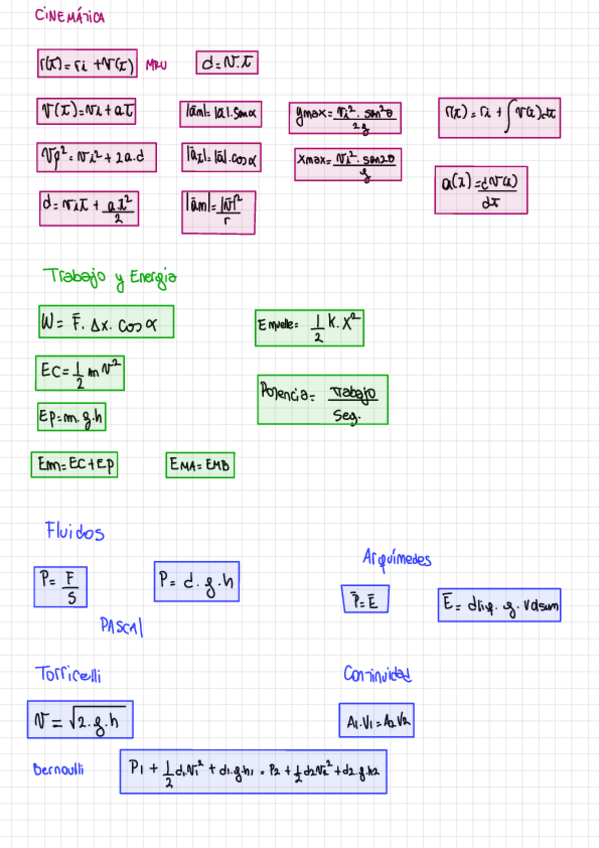 CINEMÁTICA
r(t)=ri +V(t) MRU d=V.t
V(t)=Vi+a.t |ān|=|ā|.senα ymax=Vi².sen²θ/2g r(t)=ri+∫V(t).dt
Vf²=Vi²+2a.d |āt|=|ā|.cosα xmax=Vi².sen2θ/g a(t)=dV(t)/dt
d=Vi.t+a.t²/2 |ān|=|V̄|²/r
Trabajo y Energía
W= F̄. Δx. cos α Emuelle= 1/2 K. X²
EC=1/2 m V²
Potencia= Trabajo/Seg.
Ep=m.g.h
Em=EC+Ep EMA=EMB
Fluidos
Arquímedes
P= F/S P= d.g.h P̄=Ē E=dliq. g. Vdsum
PASCAL
Torricelli Continuidad
V=√2.g.h A1.V1=A2.V2
Bernoulli P1+1/2 d1.V1²+d1.g.h1 = P2+1/2 d2V2²+d2.g.h2